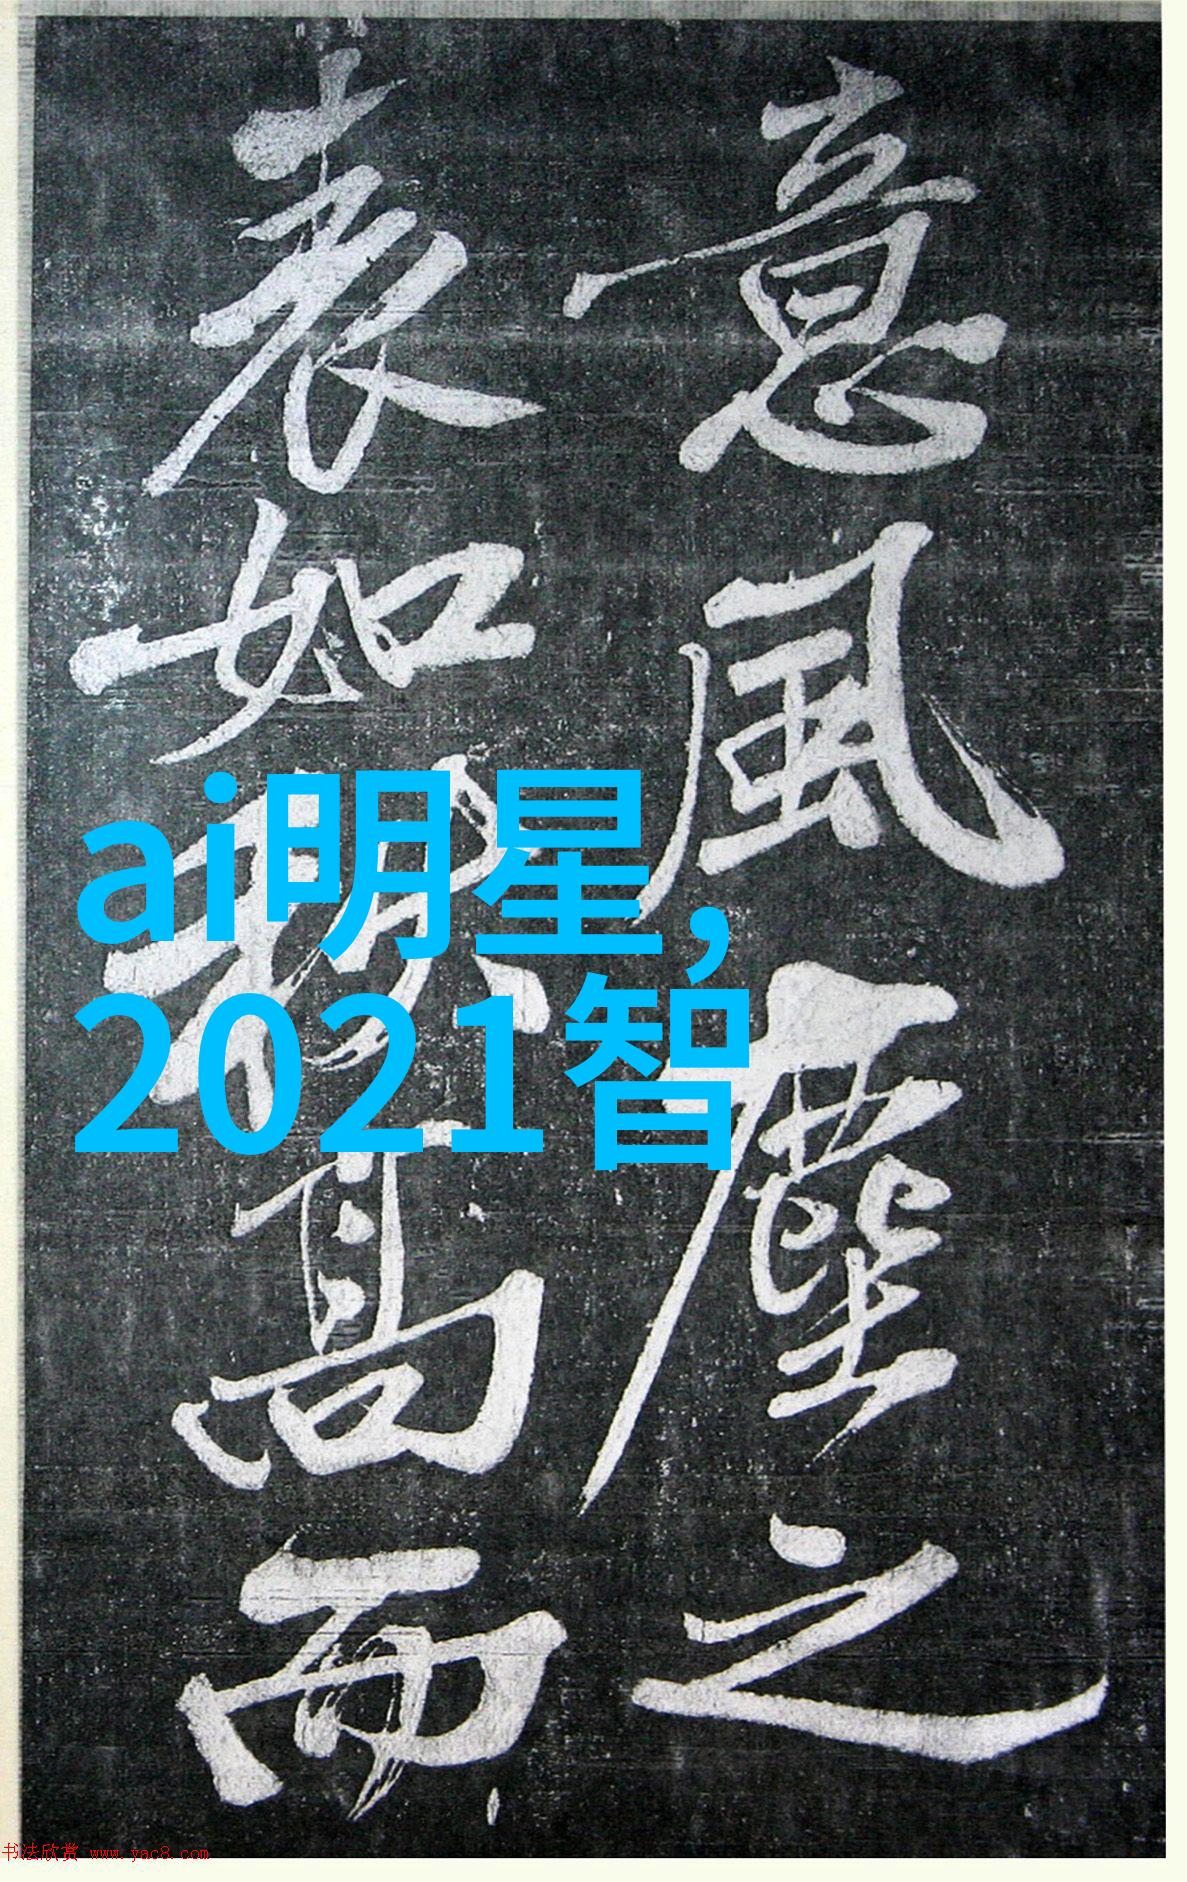 意風塵之
表如高而
ai明星,
2021智
书法欣赏 www.yac8.com